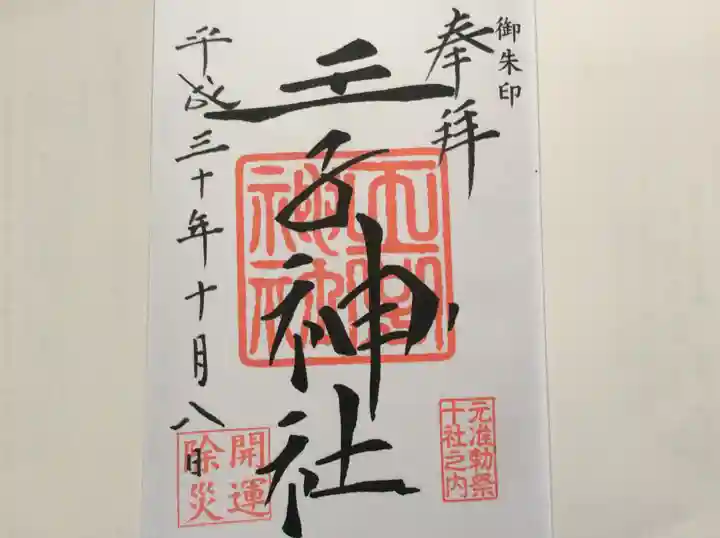 御朱印
奉拝
王子神社
王子神社
平成三十年十月八日
元准勅祭
十社之内
開運
除災